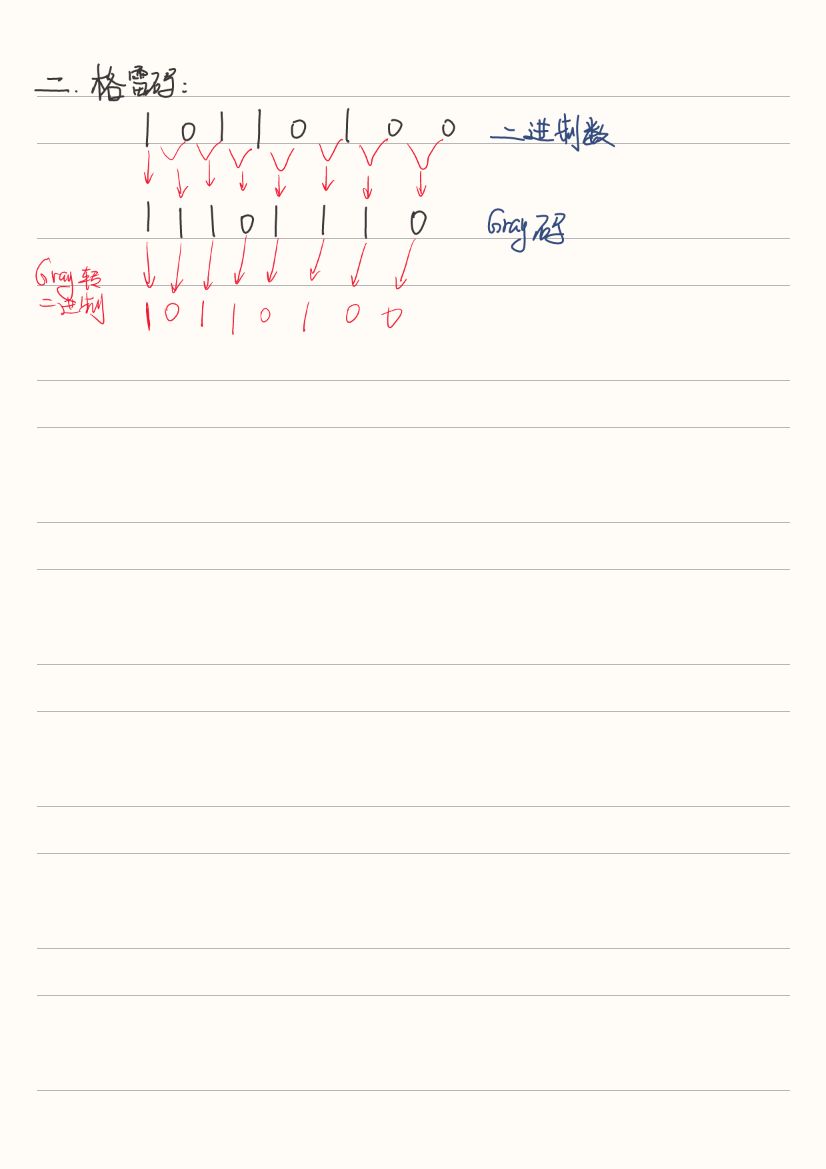 二. 格雷码:
1 0 1 1 0 1 0 0 二进制数
1 1 1 0 1 1 1 0 Gray码
Gray转
二进制 1 0 1 1 0 1 0 0